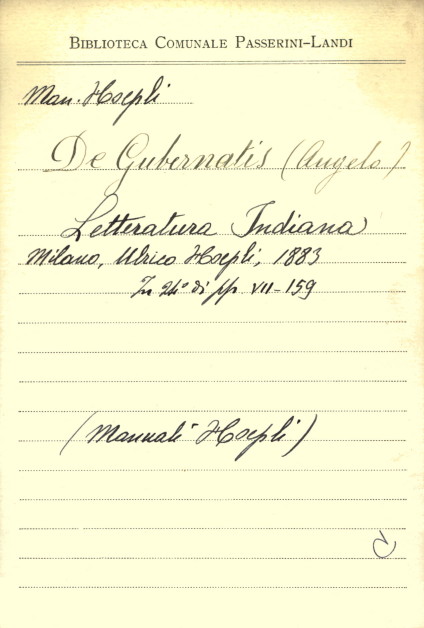 Biblioteca Comunale Passerini-Landi
Man. Hoepli
De Gubernatis (Angelo)
Letteratura Indiana
Milano, Ulrico Hoepli, 1883
In 24° di pp VII-159
(Manuali Hoepli)